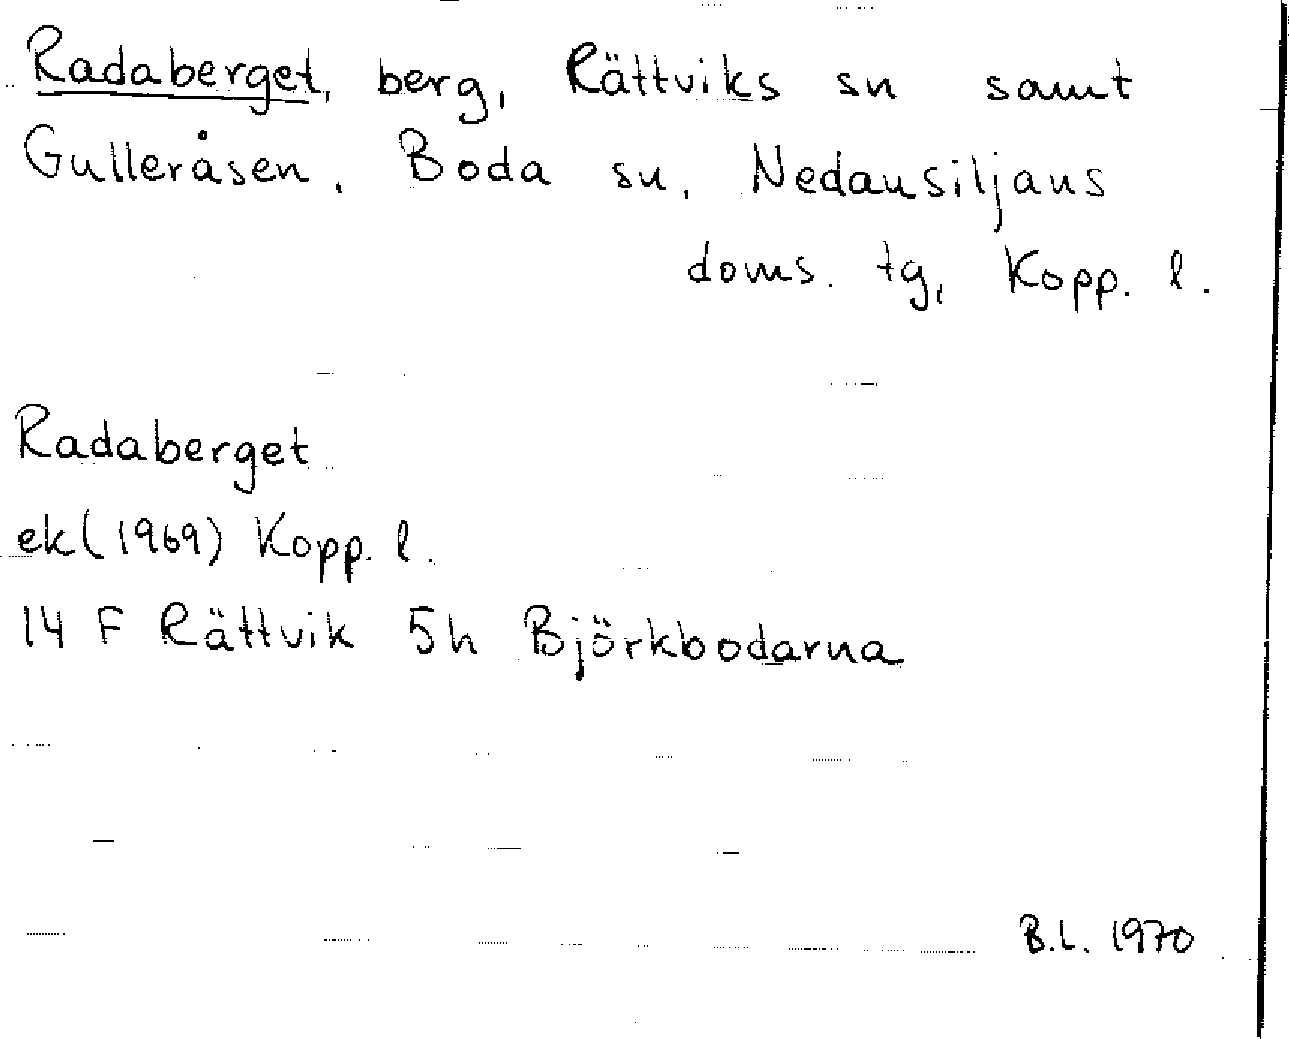 Radaberget, berg, Rättviks sn samt
Gulleråsen, Boda sn, Nedansiljans
doms. tg, Kopp. l.
Radaberget
ek (1969) Kopp. l.
14 F Rättvik 5h Björkbodarna
B.L. 1970